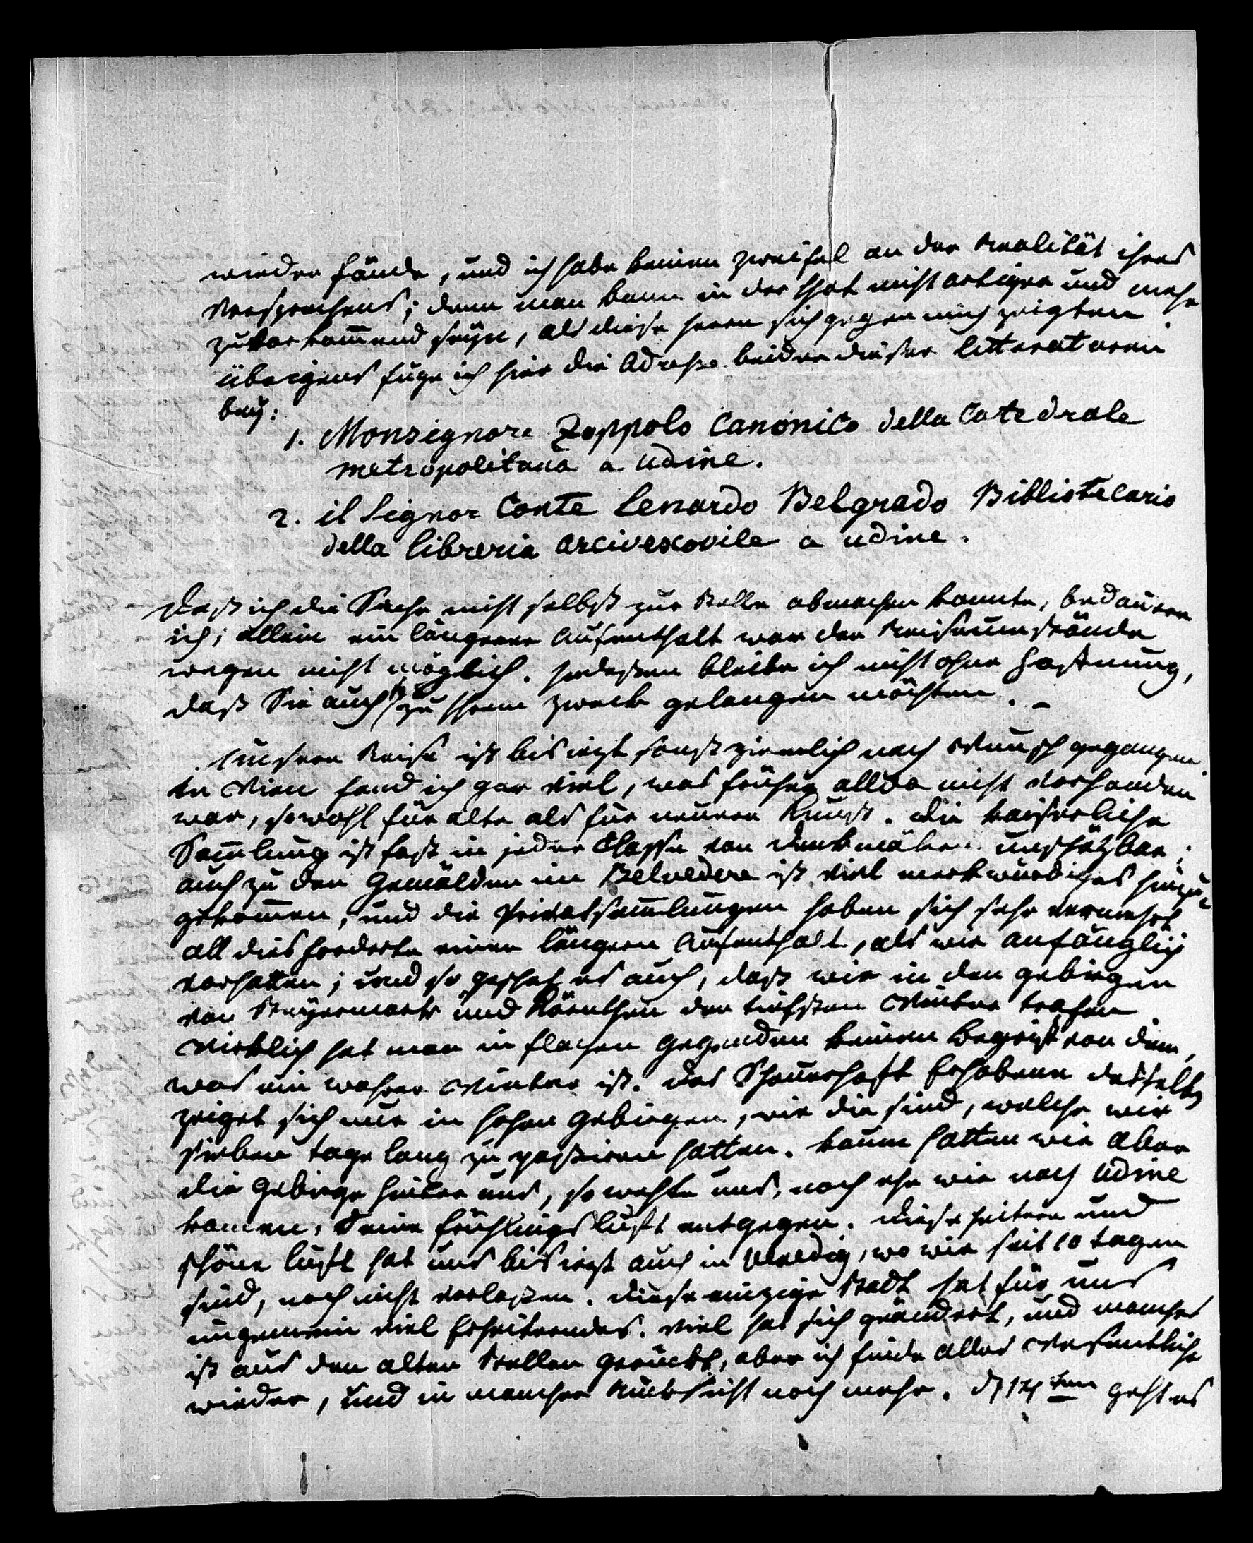 wieder fände, und ich habe keinen zweifel an der Realität ihres
Versprechens; denn man kann in der that nicht artiger und mehr
zuvorkom̄end seÿn, als diese herrn sich gegen mich zeigten.
übrigens fuge ich hier die Adreße beider dieser litteratoren
beÿ:
1. Monsignore Zoppolo Canonico della Catedrale
metropolitana a Udine.
2. il Signor Conte Lenardo Belgrado Bibliotecario
della libreria arcivescovile a udine.
Daß ich die Sache nicht selbst zur Stelle abmachen konnte, bedauere
ich; allein ein längerer Aufenthalt war der Reiseumstände
wegen nicht möglich. Indeßen bleibe ich nicht ohne Hoffnung,
daß Sie auch so zu Ihrem zweck gelangen möchten. –
Unsere Reise ist bis iezt sonst ziemlich nach Wunsch gegangen.
In Wien fand ich gar viel, was früher allda nicht vorhanden
war, sowohl für alte als für neuere Kunst. die kaiserliche
Sam̄lung ist fast in jeder Classe von denkmälern unschäzbar:
auch zu den Gemälden im Belvedere ist viel merkwürdiges hinzu
gekom̄en, und die Privatsam̄lungen haben sich sehr vermehrt
all dies forderte einen längern Aufenthalt, als wir anfänglich
vorhatten; und so geschah es auch, daß wir in den gebirgen
von Steÿermark und Kärnthen den tiefsten Winter trafen
Wirklich hat man in flachen gegenden keinen begriff von dem,
was ein wahrer Winter ist. das Schauerhaft Erhabene desselben
zeiget sich nur in hohen gebirgen, wie die sind, welche wir
sieben tage lang zu paßieren hatten. kaum hatten wir aber
die gebirge hinter uns, so wehte uns, noch ehe wir nach Udine
kamen, eine frühlingsluft entgegen. diese heitere und
schöne luft hat uns bis iezt auch in Venedig, wo wir seit 10 tagen
sind, noch nicht verlaßen. diese einzige Stadt hat für uns
ungemein viel Erheiterndes. viel hat sich geändert, und manches
ist aus den alten Stellen gerückt, aber ich finde alles Wesentliche
wieder, und in mancher Rücksicht noch mehr. d 14 ten geht es